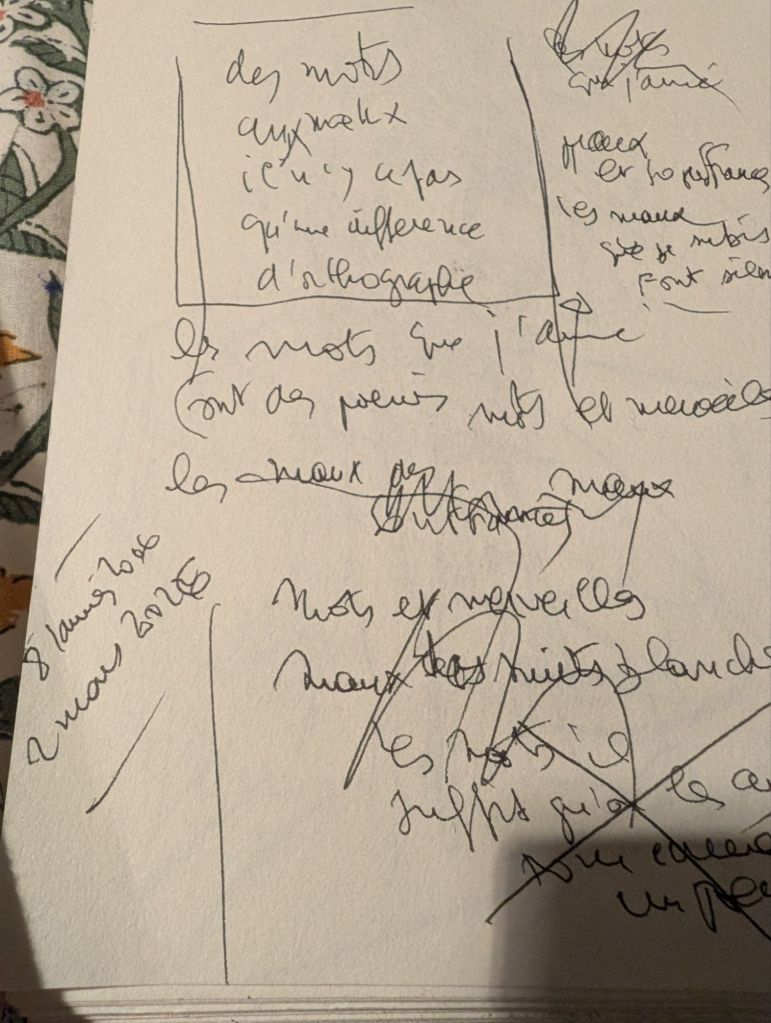 des mots
aux maux
il n'y a pas
qu'une différence
d'orthographe
les mots
que j'aime
maux
et souffrances
les maux
que je subis
sont silen
les mots que j'aime
sont des poèmes mots et merveilles
les maux des
souffrances maux
8 janvier
2 mars
Mots et merveilles
maux des nuits blanche
les mots il
suffit qu'on les
un peu